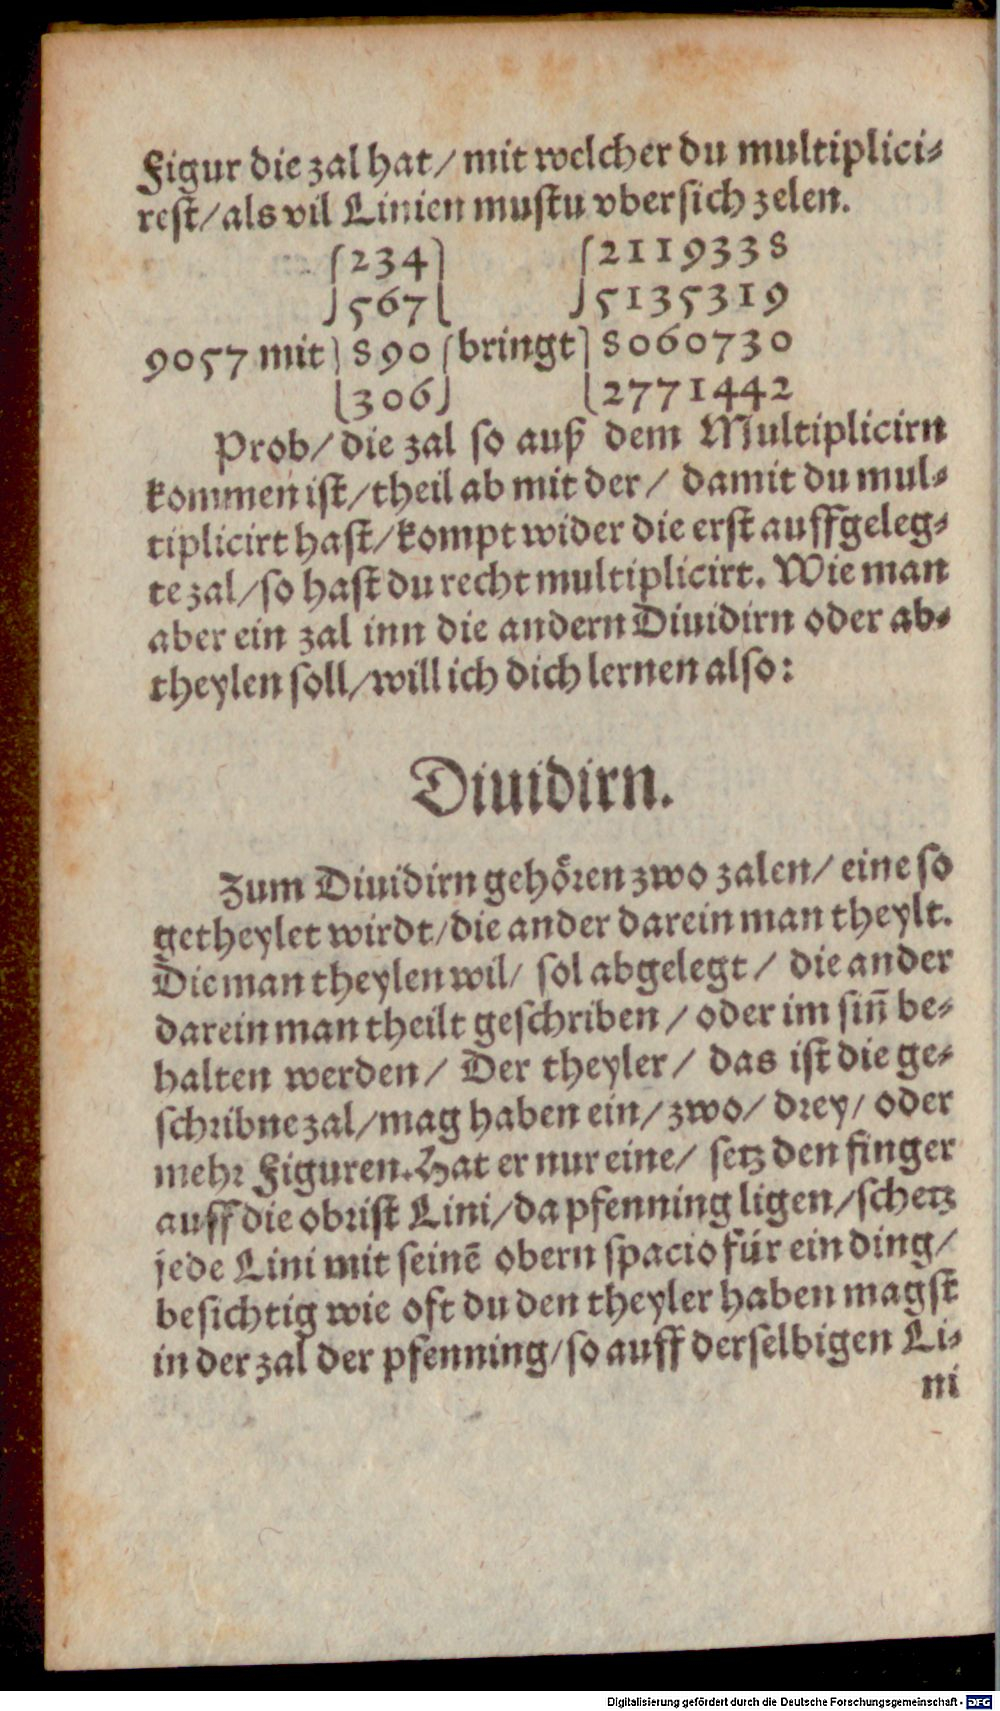 Figur die zal hat/ mit welcher du multiplici⸗
rest/ als vil Linien mustu vbersich zelen.
234 2119338
567 5135319
9057 mit 890 bringt 8060730
306 2771442
Prob/ die zal so auß dem Multiplicirn
kommen ist/ theil ab mit der/ damit du mul⸗
tiplicirt hast/ kompt wider die erst auffgeleg⸗
te zal/ so hast du recht multiplicirt. Wie man
aber ein zal inn die andern Diuidirn oder ab⸗
theylen soll/ will ich dich lernen also:
Diuidirn.
Zum Diuidirn gehören zwo zalen/ eine so
getheylet wirdt/ die ander darein man theylt.
Die man theylen wil/ sol abgelegt/ die ander
darein man theilt geschriben/ oder im sin̄ be⸗
halten werden/ Der theyler/ das ist die ge⸗
schribne zal/ mag haben ein/ zwo/ drey/ oder
mehr Figuren. Hat er nur eine/ setz den finger
auff die obrist Lini/ da pfenning ligen/ schetz
jede Lini mit seinē obern spacio für ein ding/
besichtig wie oft du den theyler haben magst
in der zal der pfenning/ so auff derselbigen Li⸗
ni
Digitalisierung gefördert durch die Deutsche Forschungsgemeinschaft - DFG